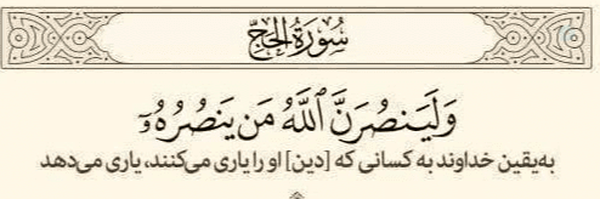 سُورَةُ الحَجِّ
وَلَيَنصُرَنَّ ٱللَّهُ مَن يَنصُرُهُۥٓ
به‌یقین خداوند به کسانی که [دین] او را یاری می‌کنند، یاری می‌دهد